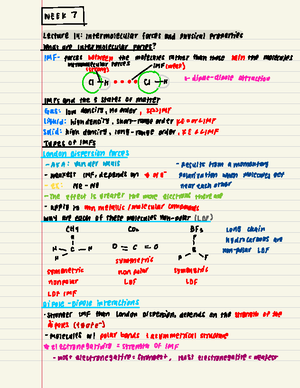 WEEK 7
Lecture 14: Intermolecular Forces and Physical Properties
What are intermolecular forces?
IMF - forces between the molecules rather than those within the molecules
intramolecular forces IMF (weak)
(strong)
Cl H Cl H
- dipole-dipole attraction
IMFs and the 3 states of matter
Gas: low density, no order, KE>IMF
Liquid: high density, short-range order, KE ~ or < IMF
Solid: high density, long-range order, KE < IMF
Types of IMFs
London dispersion forces
- AKA: Van der Waals
- Weakest IMF, depends on # of e-
- EX: Ne - Ne
- The effect is greater the more electrons there are
- Applys to non metallic / molecular compounds
- Results from a momentary
polarization when molecules get
near each other
Why are each of these molecules non-polar (LDF)
CH4 CO2 BF3
Long chain
hydrocarbons are
non-polar LDF
H
H C H
H
O = C = O
F
B
F F
symmetric
nonpolar
LDF IMF
symmetric
non polar
LDF
symmetric
LDF
Dipole-Dipole Interactions
- Stronger IMF than London Dispersion, depends on the strength of the
dipoles
- Molecules w/ polar bonds + asymmetrical structure
* electronegative = strength of IMF
- most electronegative = strongest, least electronegative = weakest